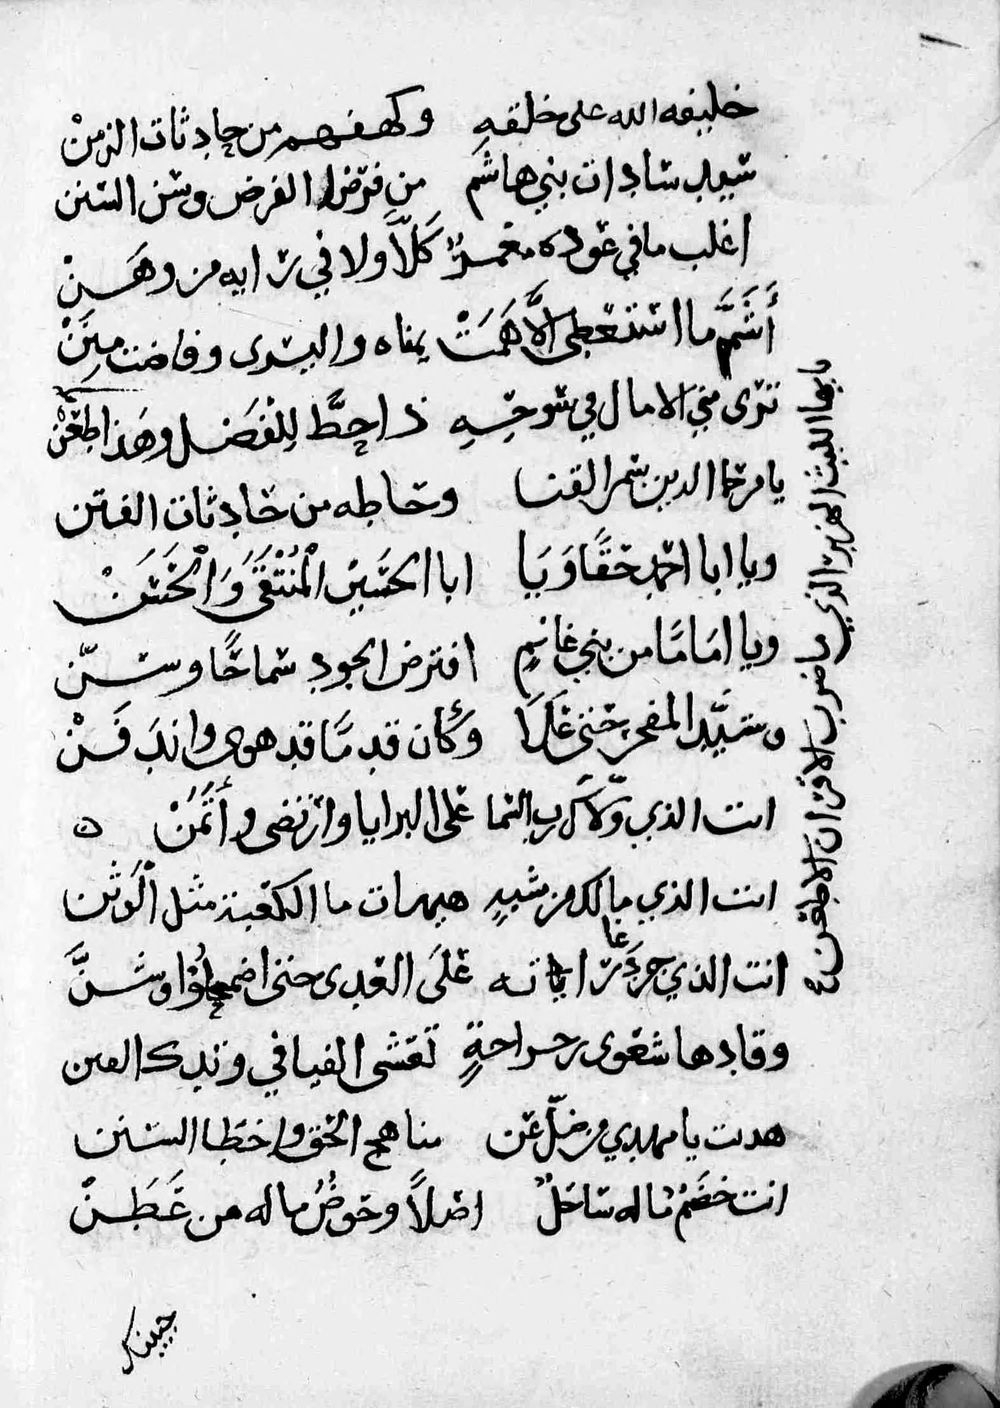 خليفه الله على خلقهِ وكهفهم من حادثات الزمنْ
سيد سادات بني هاشم من فرض الفرض وسن السنن
اغلب ما في عوده مغمزٌ كَلَّا ولا في رايه من وهَنْ
أَشَمَّ ما استمطر الَّا هَمَتْ يمناه واليسرى وفاضت مِنَنْ
ترى مني الامال في سوحِهِ ذا حِطَّ لِلْفَضل وهَذا طَعَنْ
يا مرحا الدين بسمر القنا وحاطه من حادثات الفتن
ويا ابا احمد حَقًا وَيَا ابا الحَسَين الْمُنْتَقَى وَالْحَسَنْ
ويا امَامًا من بني غانمٍ افترض الجود سَماحًا وسنّ
وسَيَّد المفخر حتى عَلَا وَكَأن قد مَّا قد هوى واندَفَنْ
انت الذي ولّاك رب السما على البرايا وارتضى وأْتَمَنْ ه
انت الذي مالك من شبيهٍ هيهات ما الكعبة مثل الْوَثن
انت الذي جرد عاداته عَلَى العدى حتى اضمحلوُا وشنَّ
وقادها شعوى رحراحةٍ تغشى الفيافي وتدك القنن
هدت يا مهدي من ضلّ عن مناهج الحق واخطا السنن
انت خضَمٌ ما له سَاحَلٌ اصْلاً وحَوضٌ ما له من عَطَنْ
يا ايها الليث الهزبر الذي يا ضرب الاقران الاطعن
جبينك